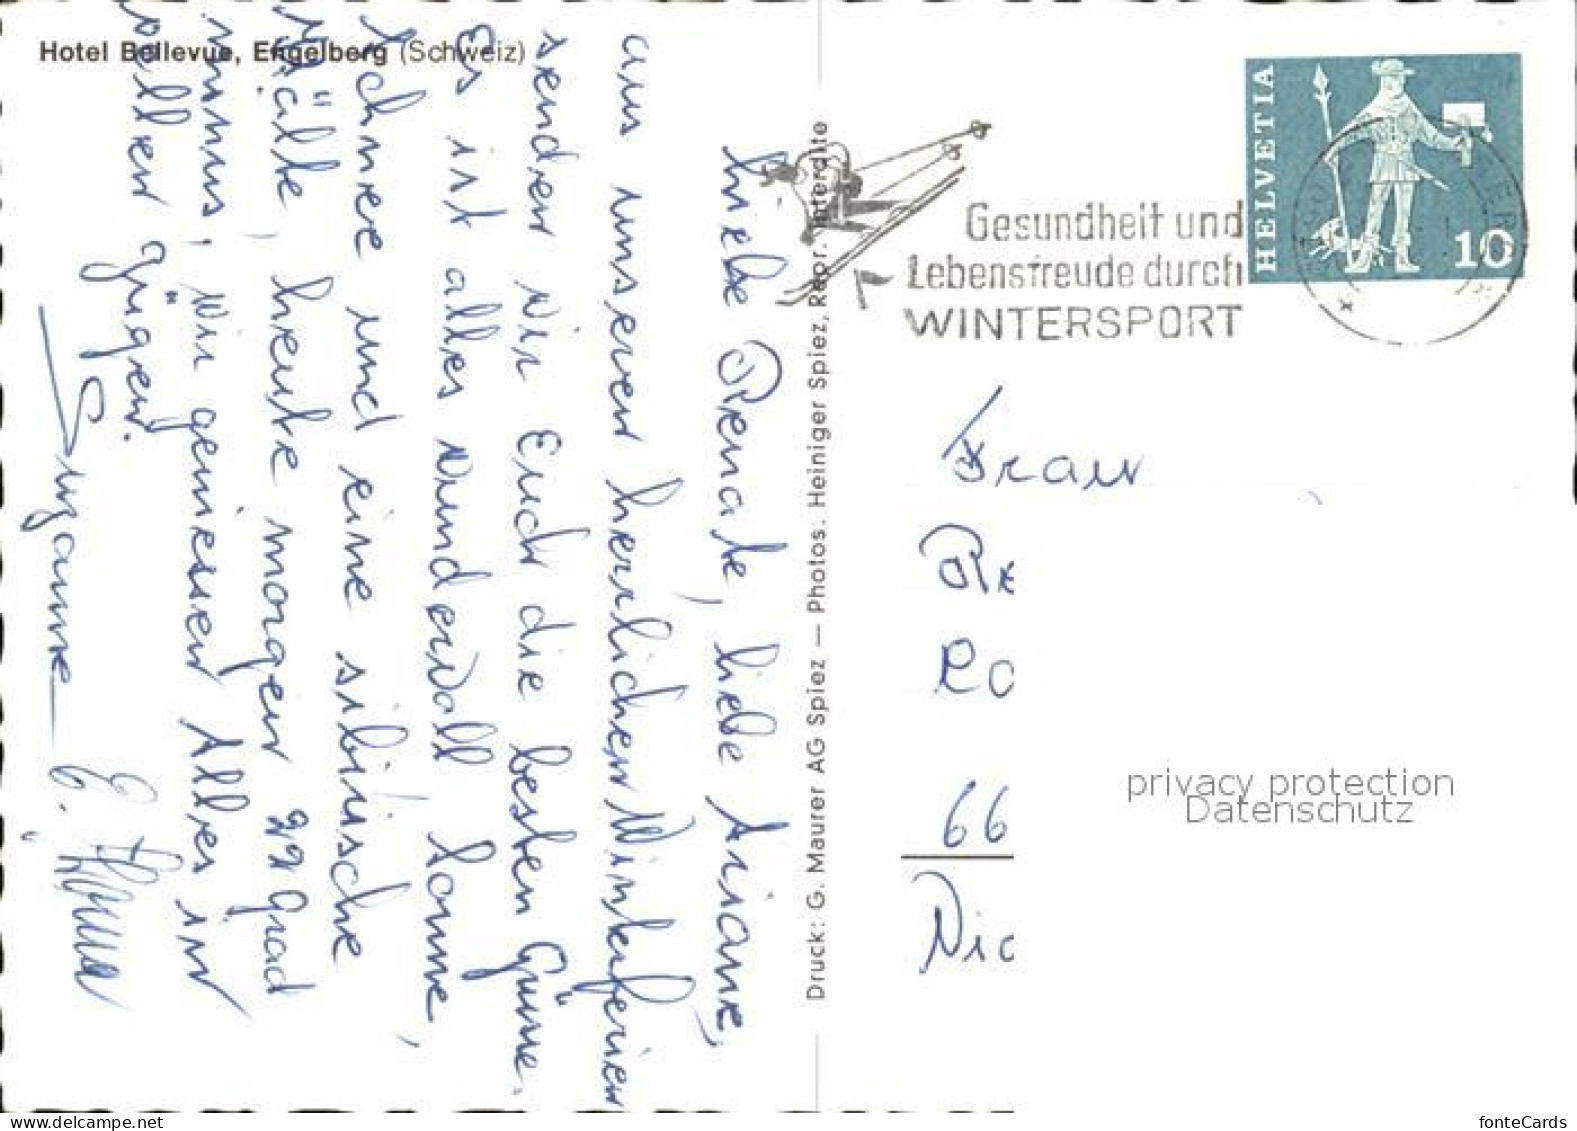 Hotel Bellevue, Engelberg (Schweiz)
Liebe Renate, liebe Ariane,
aus unseren herrlichen Winterferien
senden wir Euch die besten Grüsse.
Es ist alles wundervoll Sonne,
Schnee und eine sibirische
Kälte, heute morgen 22 Grad
minus, wir geniessen Alles in
vollen Zügen.
Suzanne
Druck: G. Maurer AG Spiez — Photos: Heiniger Spiez, Repr. interdite
Gesundheit und
Lebensfreude durch
WINTERSPORT
HELVETIA
10
Frau
Re
66
privacy protection
Datenschutz
www.delcampe.net
fonteCards